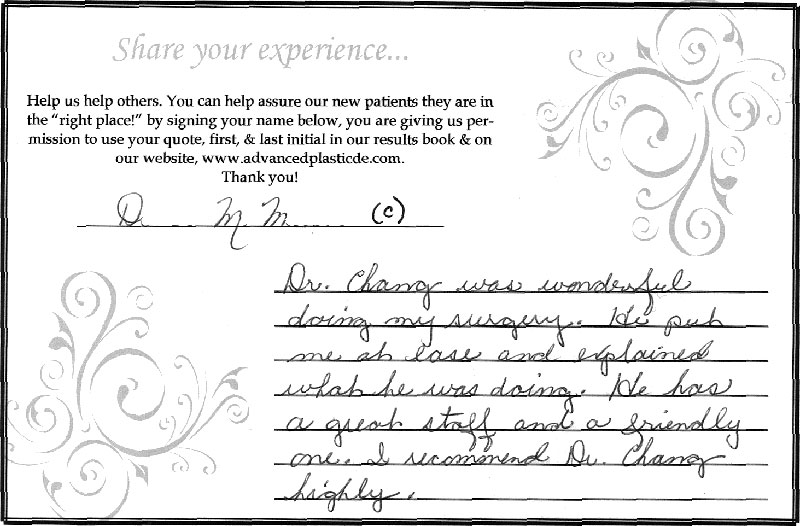 Share your experience...
Help us help others. You can help assure our new patients they are in
the "right place!" by signing your name below, you are giving us per-
mission to use your quote, first, & last initial in our results book & on
our website, www.advancedplasticde.com.
Thank you!
D. M. M. (c)
Dr. Chang was wonderful
doing my surgery. He put
me at ease and explained
what he was doing. He has
a great staff and a friendly
one. I recommend Dr. Chang
highly.